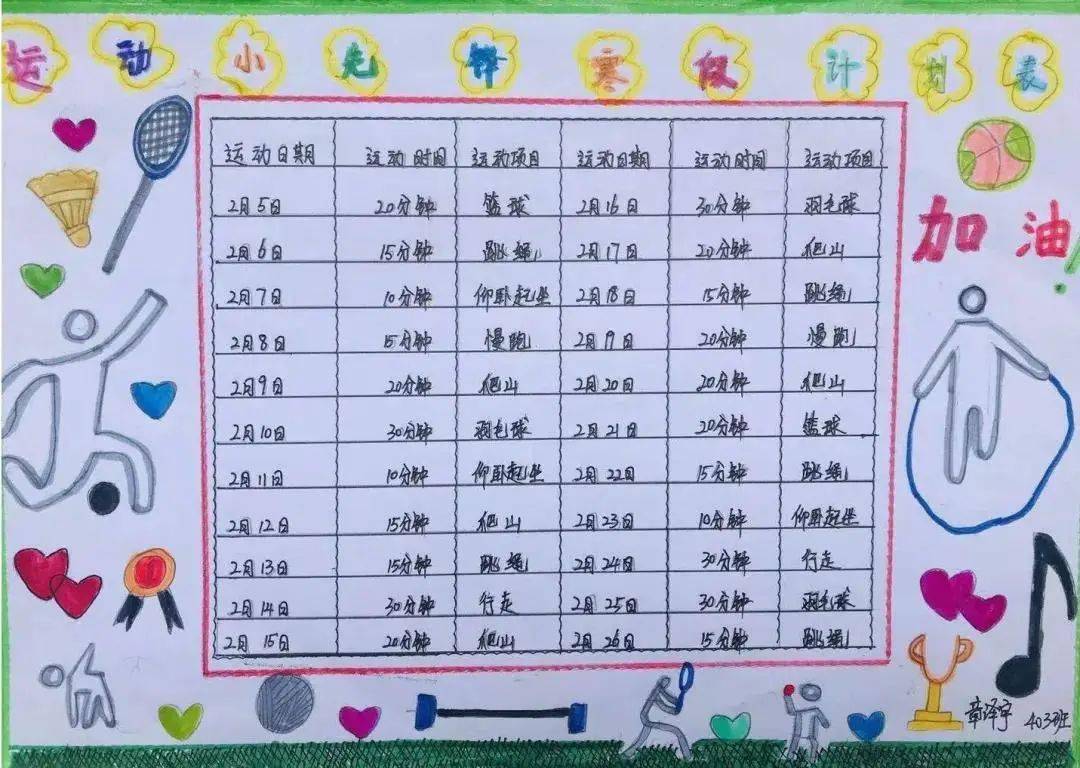 运动小先锋寒假计划表
运动日期 运动时间 运动项目 运动日期 运动时间 运动项目
2月5日 20分钟 篮球 2月16日 30分钟 羽毛球
2月6日 15分钟 跳绳 2月17日 20分钟 爬山
2月7日 10分钟 仰卧起坐 2月18日 15分钟 跳绳
2月8日 15分钟 慢跑 2月19日 20分钟 慢跑
2月9日 20分钟 爬山 2月20日 20分钟 爬山
2月10日 30分钟 羽毛球 2月21日 20分钟 篮球
2月11日 10分钟 仰卧起坐 2月22日 15分钟 跳绳
2月12日 15分钟 爬山 2月23日 10分钟 仰卧起坐
2月13日 15分钟 跳绳 2月24日 30分钟 行走
2月14日 30分钟 行走 2月25日 30分钟 羽毛球
2月15日 20分钟 爬山 2月26日 15分钟 跳绳
加油!
章泽宇 403班